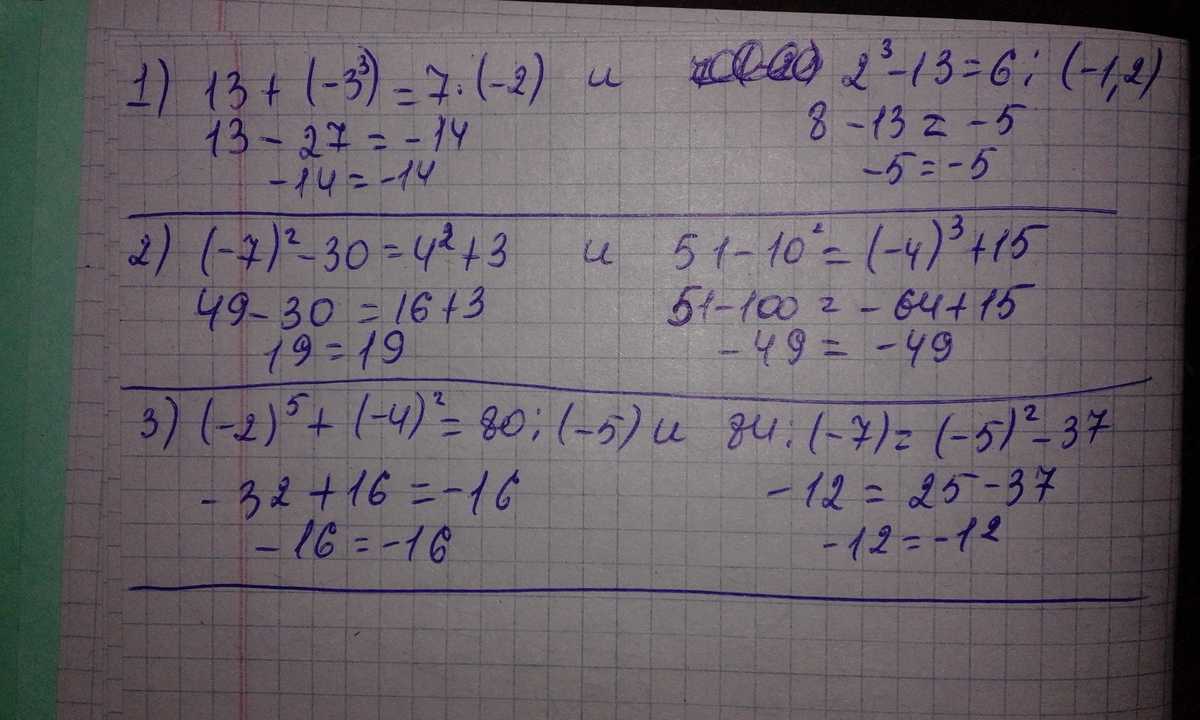 1) 13 + (-3³) = 7·(-2) и 2³-13=6:(-1,2)
13 - 27 = -14 8 -13 = -5
-14 = -14 -5 = -5
2) (-7)² -30 = 4²+3 и 51-10² = (-4)³+15
49-30 = 16+3 51-100 = -64+15
19 = 19 -49 = -49
3) (-2)⁵ + (-4)² = 80:(-5) и 84:(-7) = (-5)²-37
-32 +16 = -16 -12 = 25-37
-16 = -16 -12 = -12